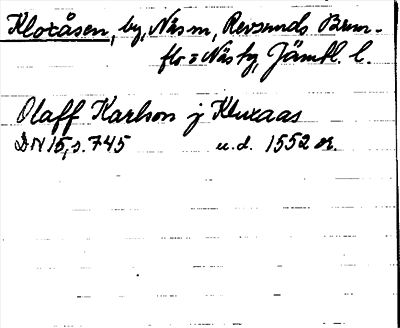 Kloxåsen, by, Näs sn, Revsunds Brun-
flo o Näs tg, Jämtl. l.
Olaff Karlson j Kluxaas
DN 15, s. 745 u.d. 1552 or.